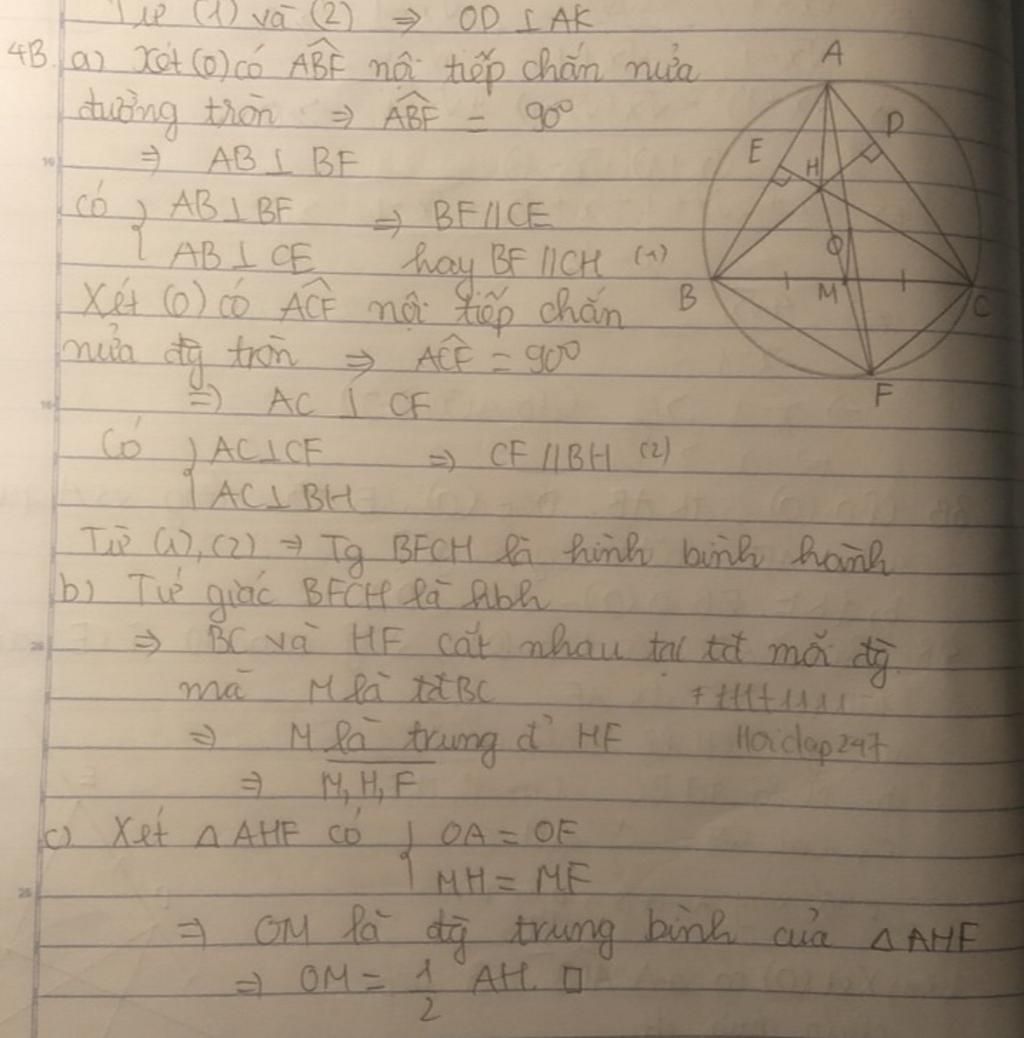 Từ (1) và (2) ⇒ OD ⊥ AK
4B. a) Xét (O) có ABF nội tiếp chắn nửa
đường tròn ⇒ ABF = 90°
⇒ AB ⊥ BF
Có { AB ⊥ BF ⇒ BF // CE
AB ⊥ CE hay BF // CH (1)
Xét (O) có ACF nội tiếp chắn
nửa đg tròn ⇒ ACF = 90°
⇒ AC ⊥ CF
Có { AC ⊥ CF ⇒ CF // BH (2)
AC ⊥ BH
Từ (1), (2) ⇒ Tg BFCH là hình bình hành
b) Tứ giác BFCH là hbh
⇒ BC và HF cắt nhau tại tđ mỗi đg
mà M là tđ BC
⇒ M là trung đ' HF
Hoidap247
⇒ M, H, F
c) Xét △AHF có { OA = OF
MH = MF
⇒ OM là đg trung bình của △AHF
⇒ OM = 1/2 AH. □
A
D
E
H
O
B
M
C
F